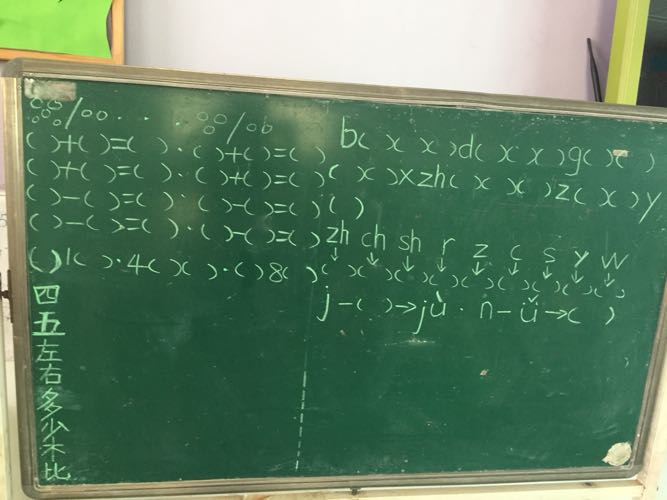 ( )+( )=( )·( )+( )=( )
( )+( )=( )·( )+( )=( )
( )-( )=( )·( )-( )=( )
( )-( )=( )·( )-( )=( )
( )1( )·4( )( )·( )8( )
四
五
左
右
多
少
木
比
b( )( )d( )( )g( )( )
( )( )zh( )( )( )z( )( )y
zh ch sh r z c s y w
↓ ↓ ↓ ↓ ↓ ↓ ↓ ↓ ↓
( )( )( )( )( )( )( )( )( )
j-( )→jù·n-ǚ→( )